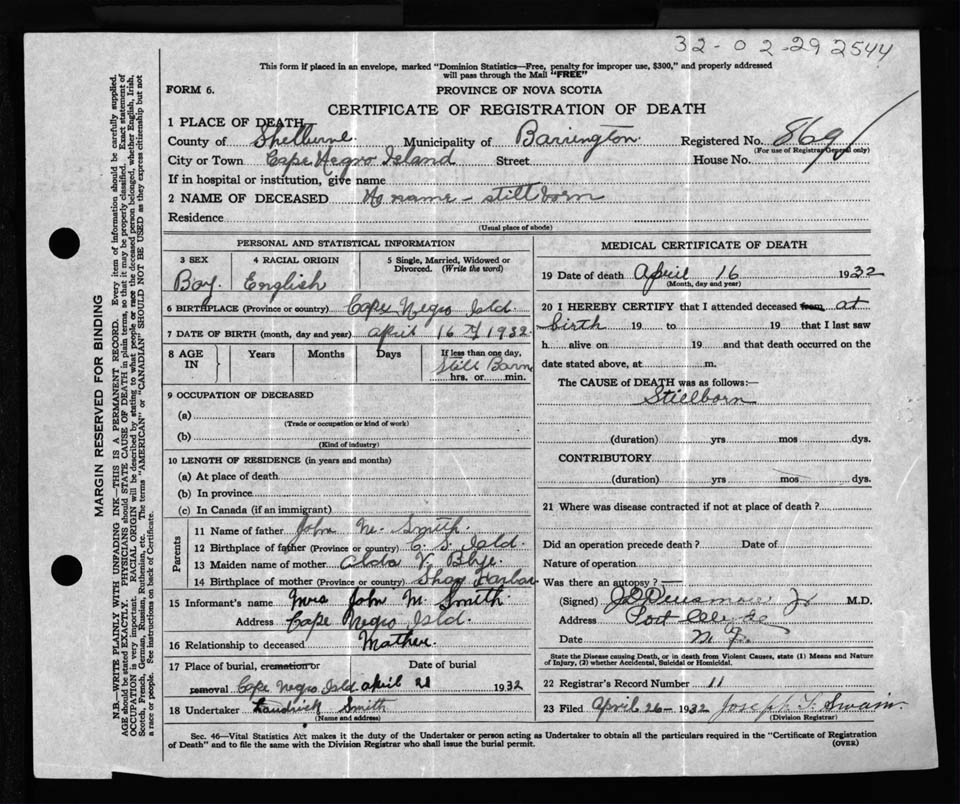 32-02-29 2544
This form if placed in an envelope, marked "Dominion Statistics—Free, penalty for improper use, $300," and properly addressed
will pass through the Mail "FREE"
FORM 6.
PROVINCE OF NOVA SCOTIA
CERTIFICATE OF REGISTRATION OF DEATH
1 PLACE OF DEATH
County of Shelburne Municipality of Barrington Registered No. 869
(For use of Registrar General only)
City or Town Cape Negro Island Street House No.
If in hospital or institution, give name
2 NAME OF DECEASED No name - still born
Residence
(Usual place of abode)
PERSONAL AND STATISTICAL INFORMATION
3 SEX 4 RACIAL ORIGIN 5 Single, Married, Widowed or
Divorced. (Write the word)
Boy. English
6 BIRTHPLACE (Province or country) Cape Negro Isld.
7 DATE OF BIRTH (month, day and year) April 16 1932.
8 AGE IN Years Months Days If less than one day,
Still Born
hrs. or min.
9 OCCUPATION OF DECEASED
(a)
(Trade or occupation or kind of work)
(b)
(Kind of industry)
10 LENGTH OF RESIDENCE (in years and months)
(a) At place of death
(b) In province
(c) In Canada (if an immigrant)
Parents
11 Name of father John M. Smith
12 Birthplace of father (Province or country) Isld.
13 Maiden name of mother Alda V.
14 Birthplace of mother (Province or country) Shag Harbor
15 Informant's name Mrs John M. Smith
Address Cape Negro Isld.
16 Relationship to deceased Mother
17 Place of burial, cremation or Date of burial
removal Cape Negro Isld April 21 1932
18 Undertaker Smith
(Name and address)
MEDICAL CERTIFICATE OF DEATH
19 Date of death April 16 1932
(Month, day and year)
20 I HEREBY CERTIFY that I attended deceased from at
birth 19 to 19 that I last saw
h alive on 19 and that death occurred on the
date stated above, at m.
The CAUSE OF DEATH was as follows:—
Stillborn
(duration) yrs mos dys.
CONTRIBUTORY
(duration) yrs mos dys.
21 Where was disease contracted if not at place of death?
Did an operation precede death? Date of
Nature of operation
Was there an autopsy? —
(Signed) Jr M.D.
Address Port Clyde
Date
State the Disease causing Death, or in death from Violent Causes, state (1) Means and Nature
of Injury, (2) whether Accidental, Suicidal or Homicidal.
22 Registrar's Record Number 11
23 Filed April 26 - 1932 Joseph Swain
(Division Registrar)
Sec. 46—Vital Statistics Act makes it the duty of the Undertaker or person acting as Undertaker to obtain all the particulars required in the "Certificate of Registration
of Death" and to file the same with the Division Registrar who shall issue the burial permit.
(OVER)
MARGIN RESERVED FOR BINDING
N.B.—WRITE PLAINLY WITH UNFADING INK—THIS IS A PERMANENT RECORD. Every item of information should be carefully supplied.
AGE should be stated EXACTLY. PHYSICIANS should STATE CAUSE OF DEATH in plain terms, so that it may be properly classified. Exact statement of
OCCUPATION is very important. RACIAL ORIGIN will be described by stating to what people or race the deceased person belonged, whether English, Irish,
Scotch, French, German, Russian, Ruthenian, etc. The terms "AMERICAN" or "CANADIAN" SHOULD NOT BE USED as they express citizenship but not
a race or people. See instructions on back of Certificate.